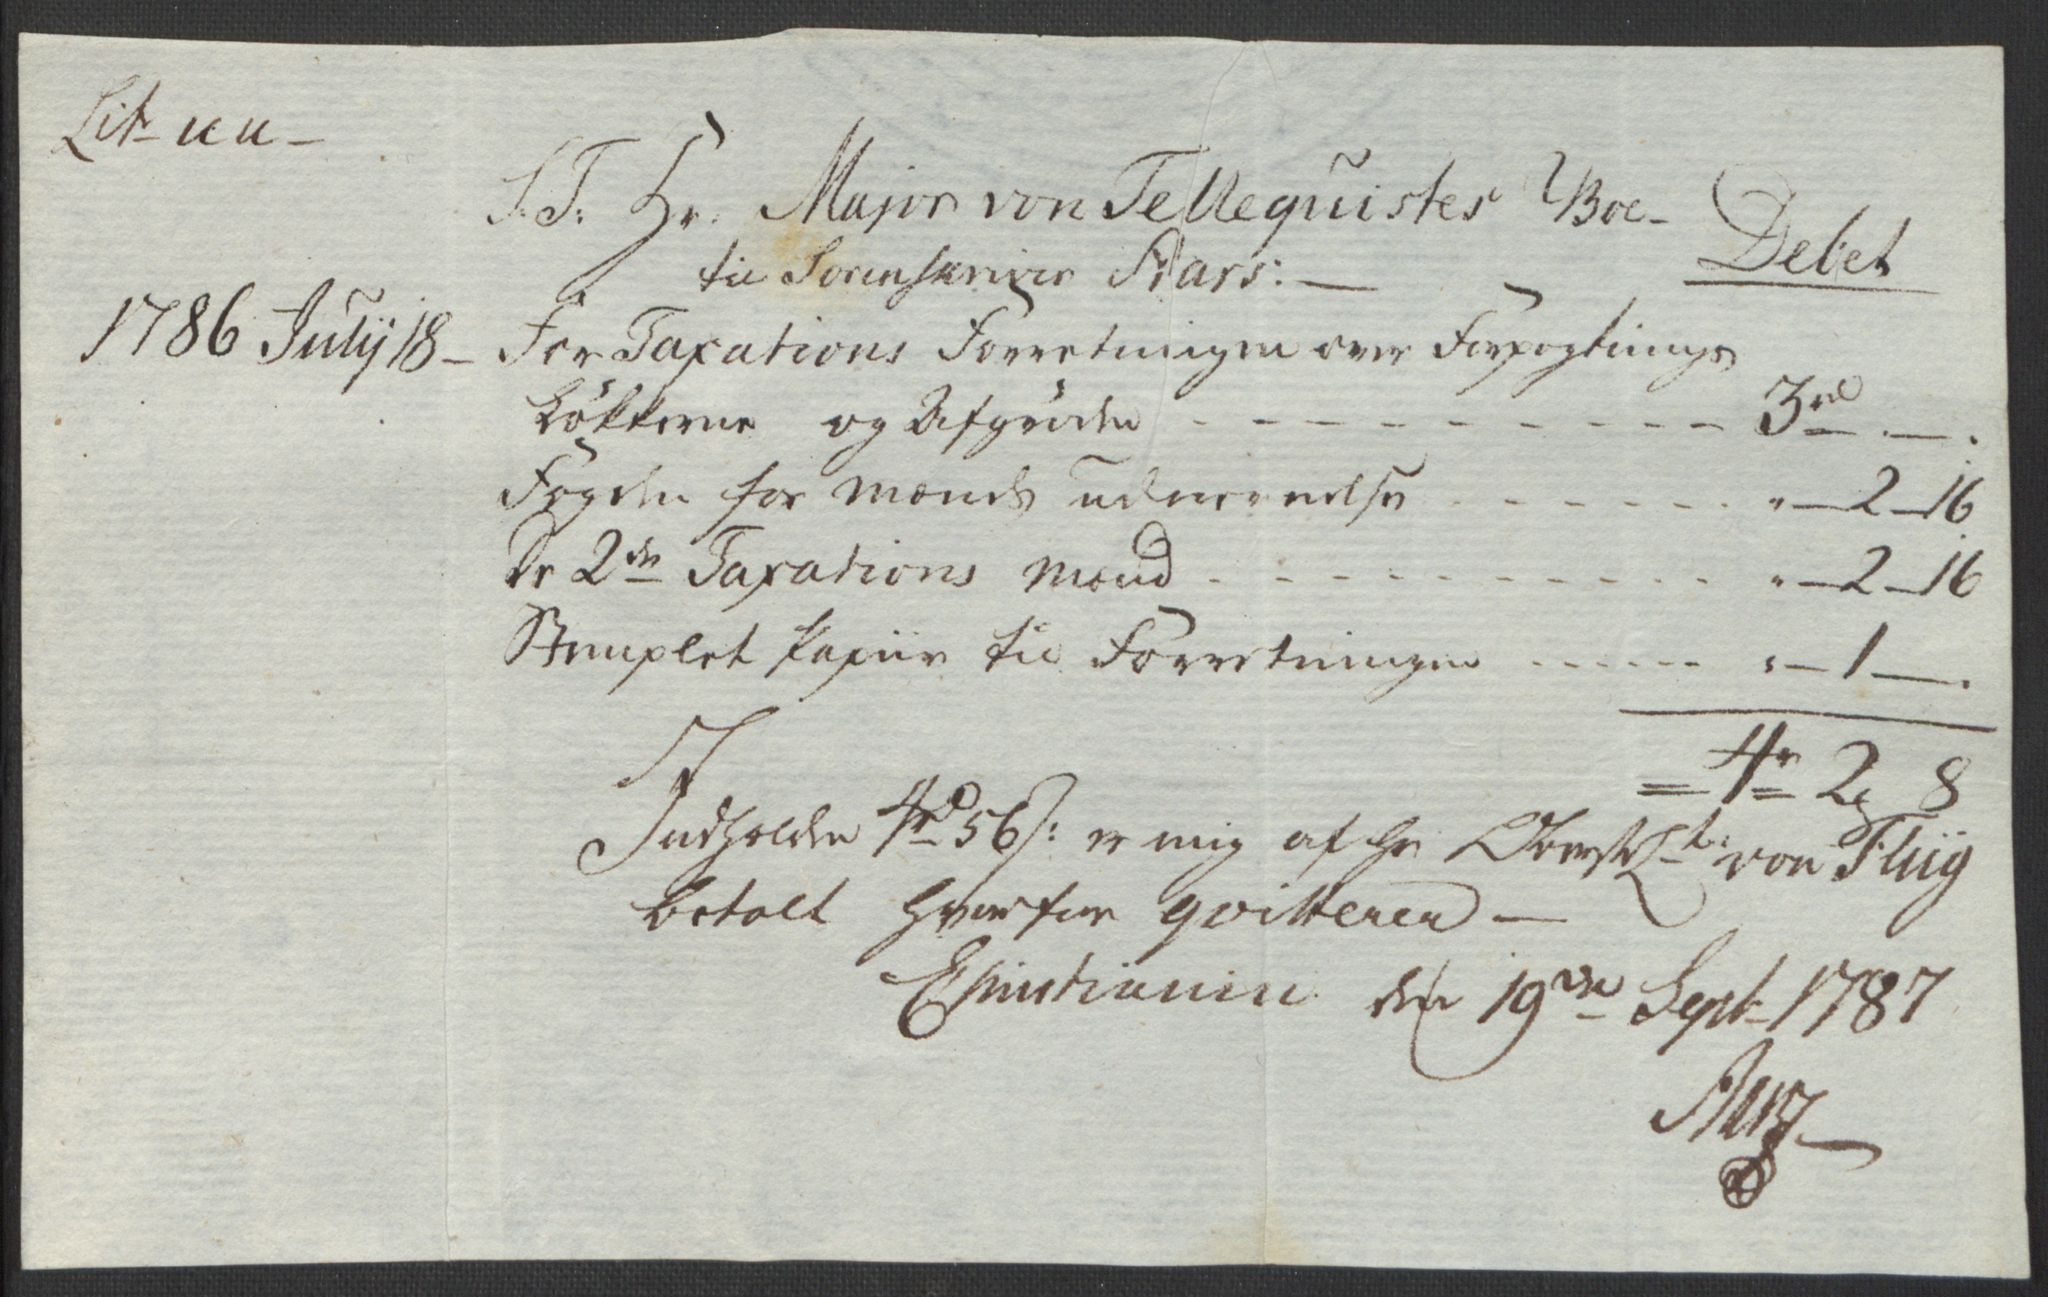 Lit. uu
S. T. Hr. Major von Tellequistes Boe
til Sorenskriver Aars: Debet
1786 July 18 For Taxations Forretningen over Forpagtnings
Løkkerne og Afgrøden 3rd
Fogden for mænds udnævnelse " 2 16
De 2de Taxations mænd " 2 16
Stemplet Papiir til Forretningen " 1
4r 2 8
Indholdne 4rd 56s: er mig af Hr Oberst Lt: von Fliig
betalt hvorfor qvitterer
Christiania den 19de Sept 1787